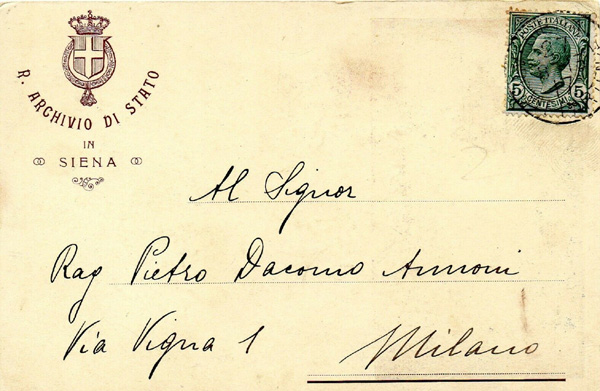 R. ARCHIVIO DI STATO
IN
SIENA
POSTE ITALIANE
5 CENTESIMI 5
Al Signor
Rag Pietro Dacomo Annoni
Via Vigna 1 Milano